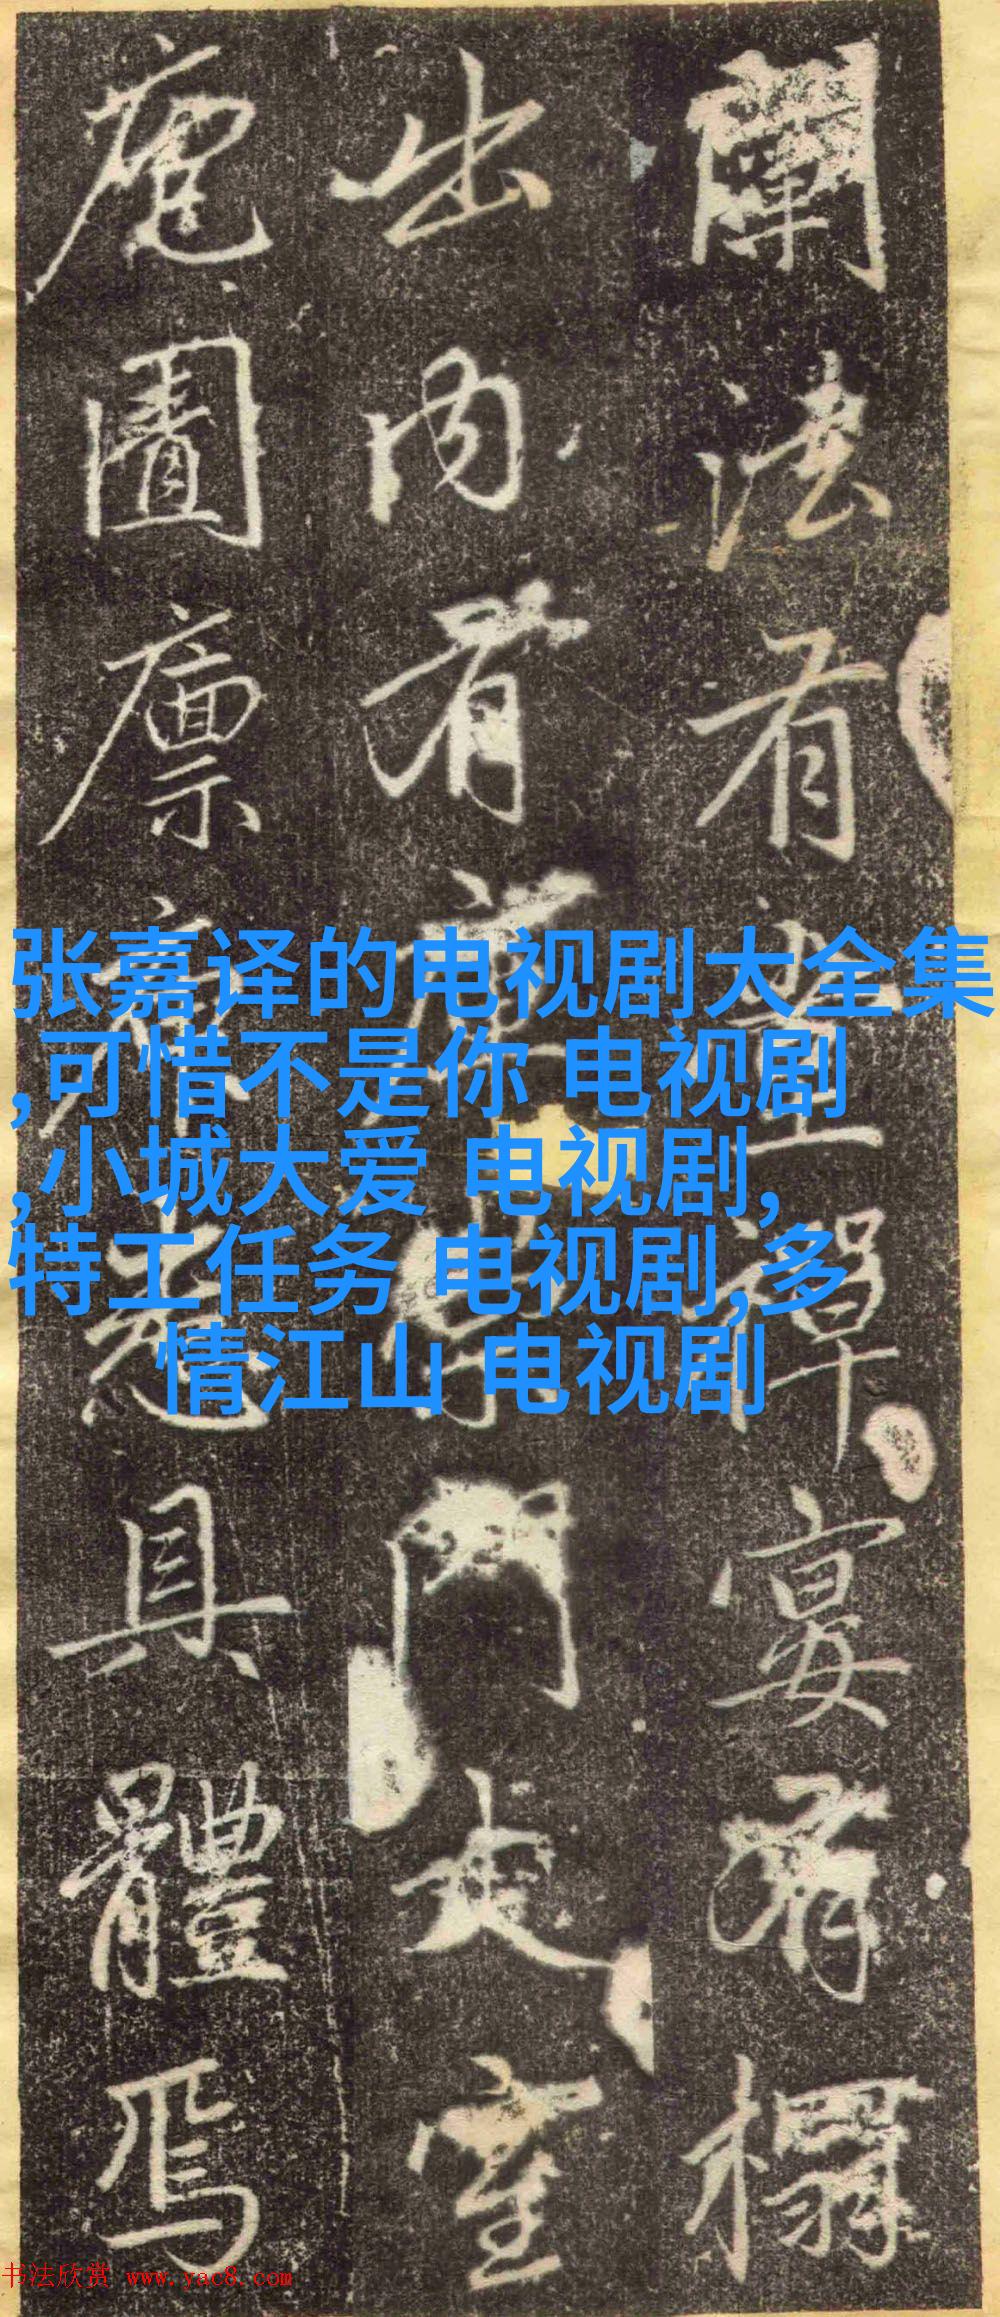 闡法有坐禪宴有榻
出内有門夾室
廩悉具體焉
张嘉译的电视剧大全集
,可惜不是你 电视剧
,小城大爱 电视剧,
特工任务 电视剧,多
情江山 电视剧
书法欣赏 www.yac8.com